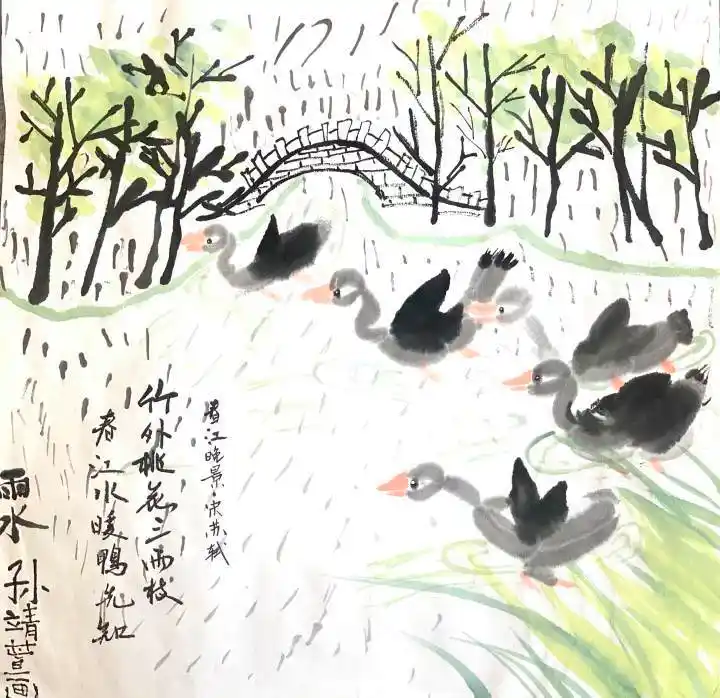 春江晚景·宋苏轼
竹外桃花三两枝
春江水暖鴨先知
雨水
孙靖萱画